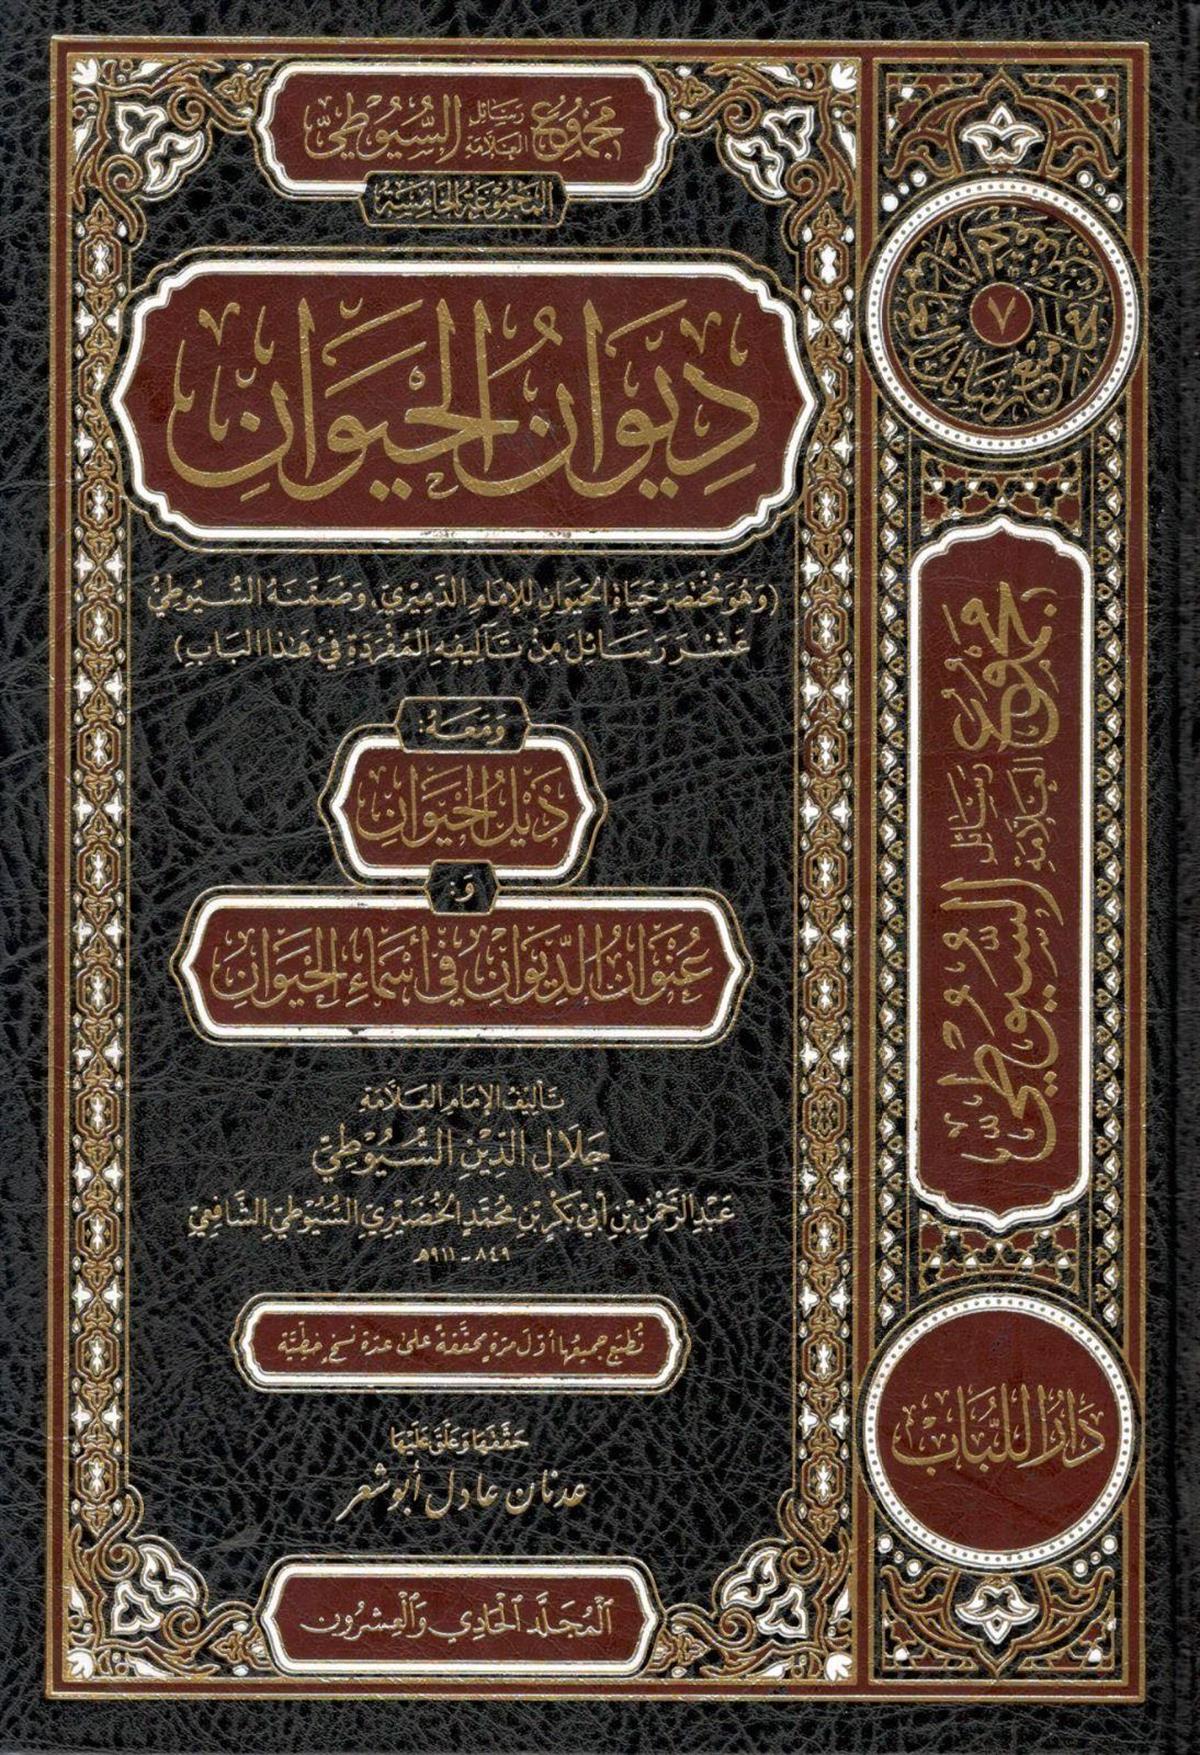 مجموع رسائل العلامة السيوطي
المجموعة الخامسة
ديوان الحيوان
(وهو مختصر حياة الحيوان للإمام الدميري، وضمنه السيوطي
عشر رسائل من تآليفه المفردة في هذا الباب)
ومعه:
ذيل الحيوان
و:
عنوان الديوان في أسماء الحيوان
تأليف الإمام العلامة
جلال الدين السيوطي
عبد الرحمن بن أبي بكر بن محمد الخضيري السيوطي الشافعي
٨٤٩ - ٩١١هـ
تطبع جميعها أول مرة محققة على عدة نسخ خطية
حققها وعلق عليها
عدنان عادل أبو شعر
المجلد الحادي والعشرون
٧
مجموع رسائل العلامة السيوطي
دار اللباب